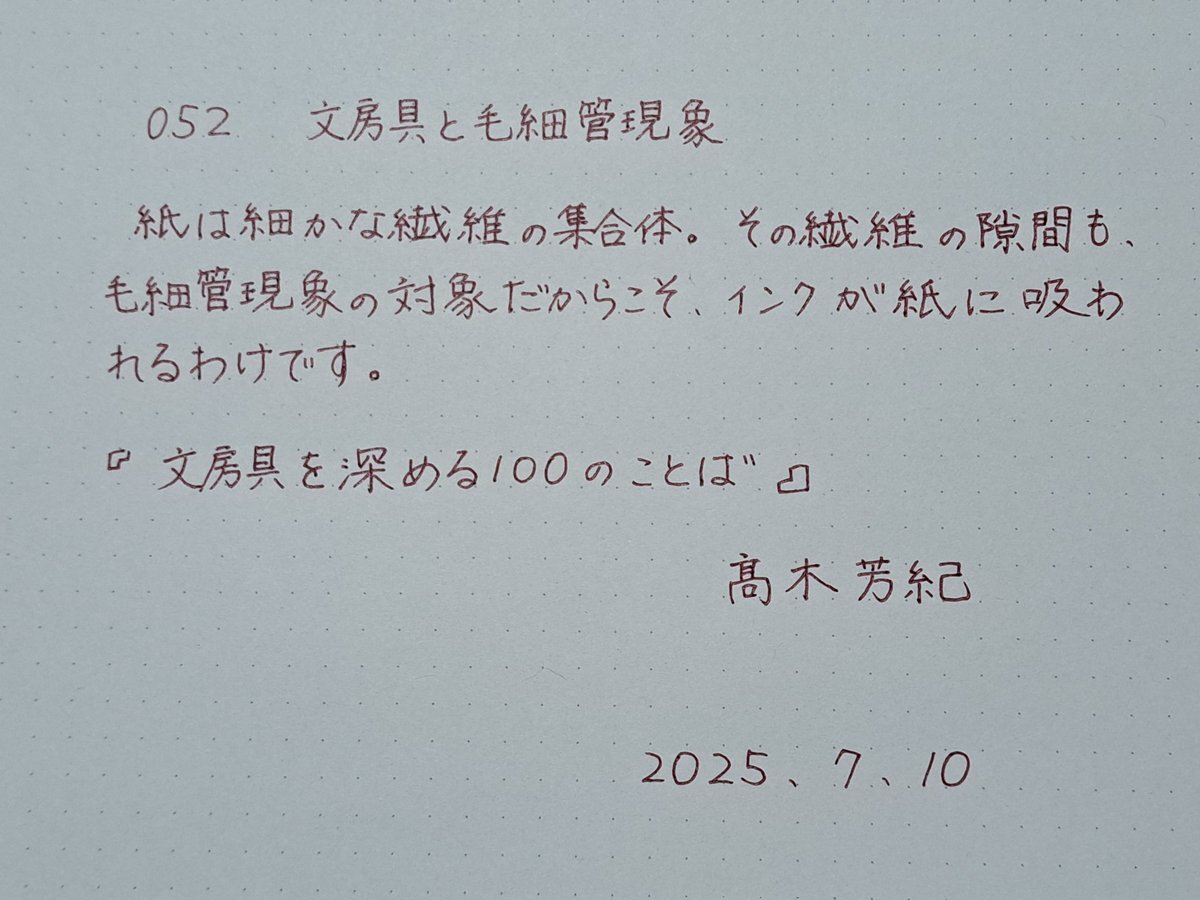 052 文房具と毛細管現象
紙は細かな繊維の集合体。その繊維の隙間も、
毛細管現象の対象だからこそ、インクが紙に吸わ
れるわけです。
『文房具を深める100のことば』
髙木芳紀
2025、7、10